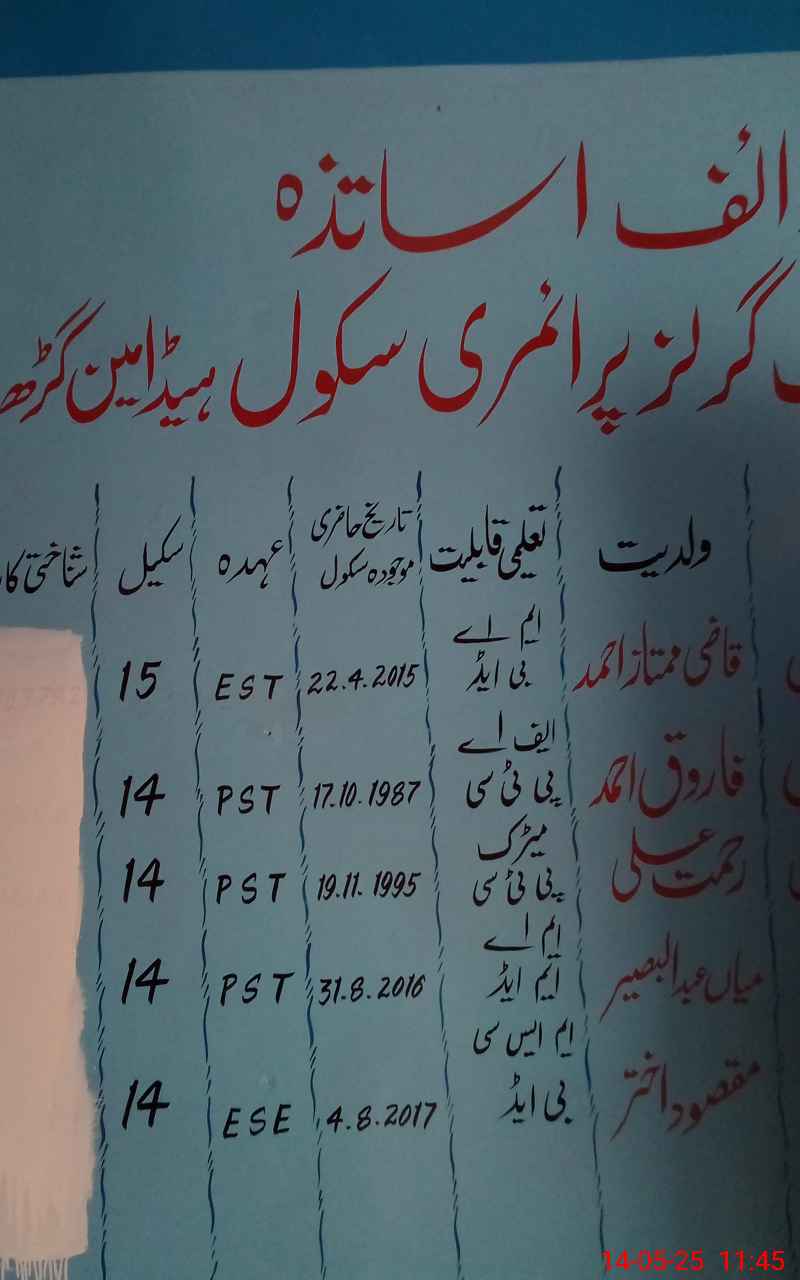 ائف اساتذہ
گرلز پرائمری سکول ہیڈ امین گڑھ
ولدیت تعلیمی قابلیت تاریخ حاضری موجودہ سکول عہدہ سکیل شناختی کا
قاضی ممتاز احمد ایم اے بی ایڈ 22.4.2015 EST 15
فاروق احمد ایف اے پی ٹی سی 17.10.1987 PST 14
رحمت علی میٹرک پی ٹی سی 19.11.1995 PST 14
میاں عبدالبصیر ایم اے ایم ایڈ 31.8.2016 PST 14
مقصود اختر ایم ایس سی بی ایڈ 4.8.2017 ESE 14
14-05-25 11:45